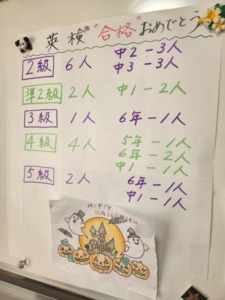 英検® "合格" おめでとう
2級 6人 中2-3人
中3-3人
準2級 2人 中1-2人
3級 1人 6年-1人
4級 4人 5年-1人
6年-2人
中1-1人
5級 2人 6年-1人
中1-1人